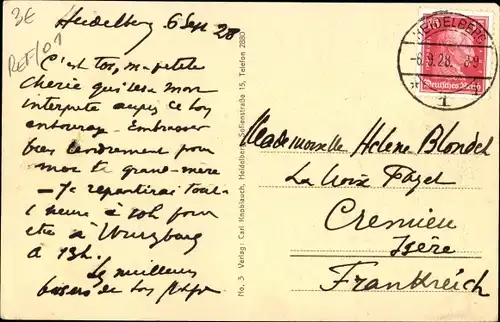 3€
Heidelberg 6 Sept 28
C'est toi, ma petite
chérie qui sera mon
interprète auprès de ton
entourage. Embrasser
bien tendrement pour
moi ta grand-mère
— Je repartirai tout
l'heure à 10h pour
être à Wurzburg
à 13h.
Les meilleurs
baisers de ton
No. 3 Verlag: Carl Knoblauch, Heidelberg, Sofienstraße 15, Telefon 2880
HEIDELBERG
-6.9.28.
1
Deutsches Reich
Mademoiselle Helene Blondel
La Croix
Cremieu
Isère
Frankreich